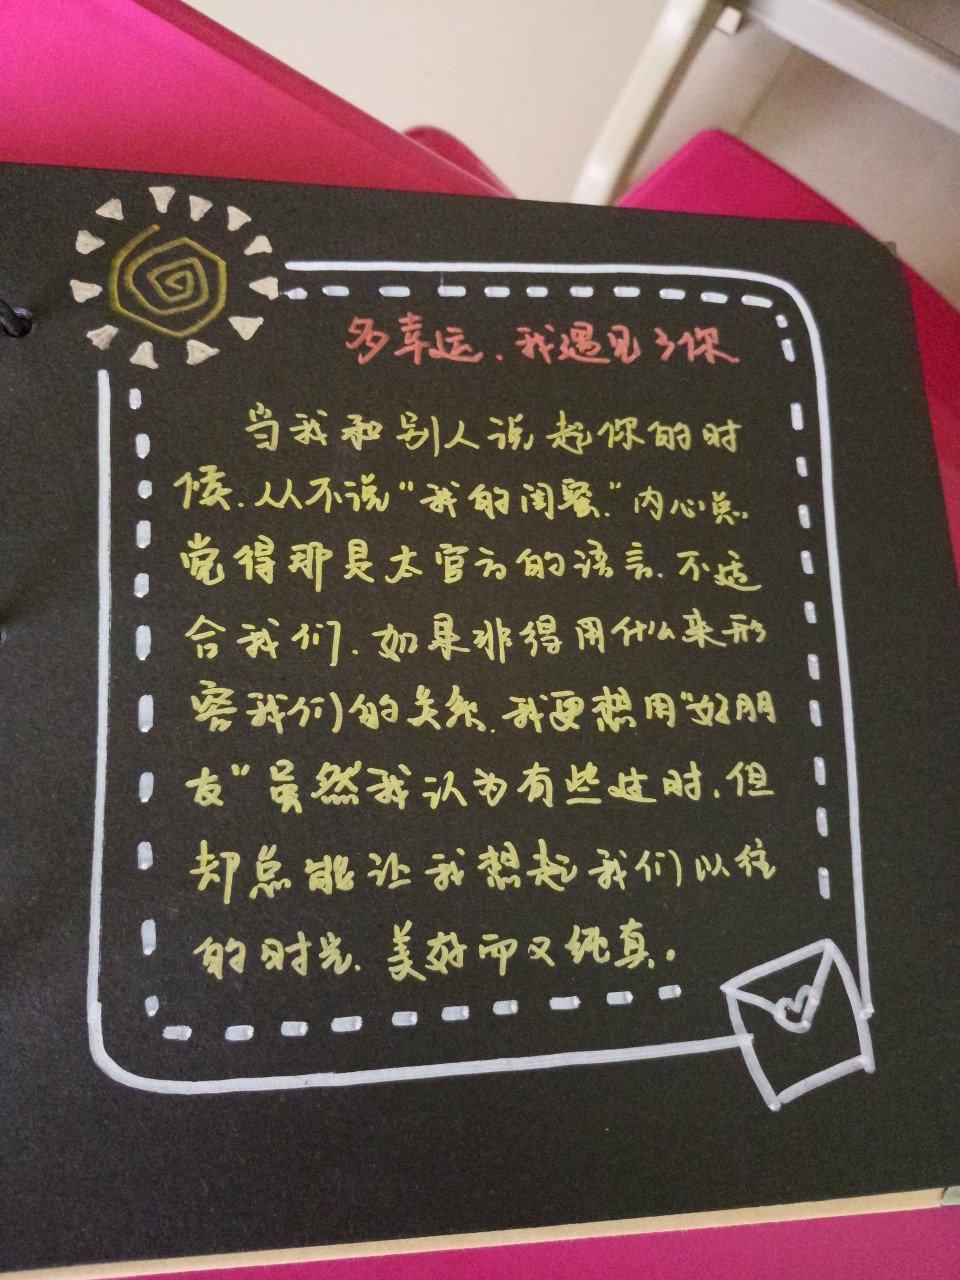 多幸运、我遇见了你
当我和别人说起你的时
候、从不说“我的闺蜜.”内心总
觉得那是太官方的语言、不适
合我们、如果非得用什么来形
容我们的关系、我更想用“好朋
友”虽然我认为有些过时、但
却总能让我想起我们以往
的时光、美好而又纯真。